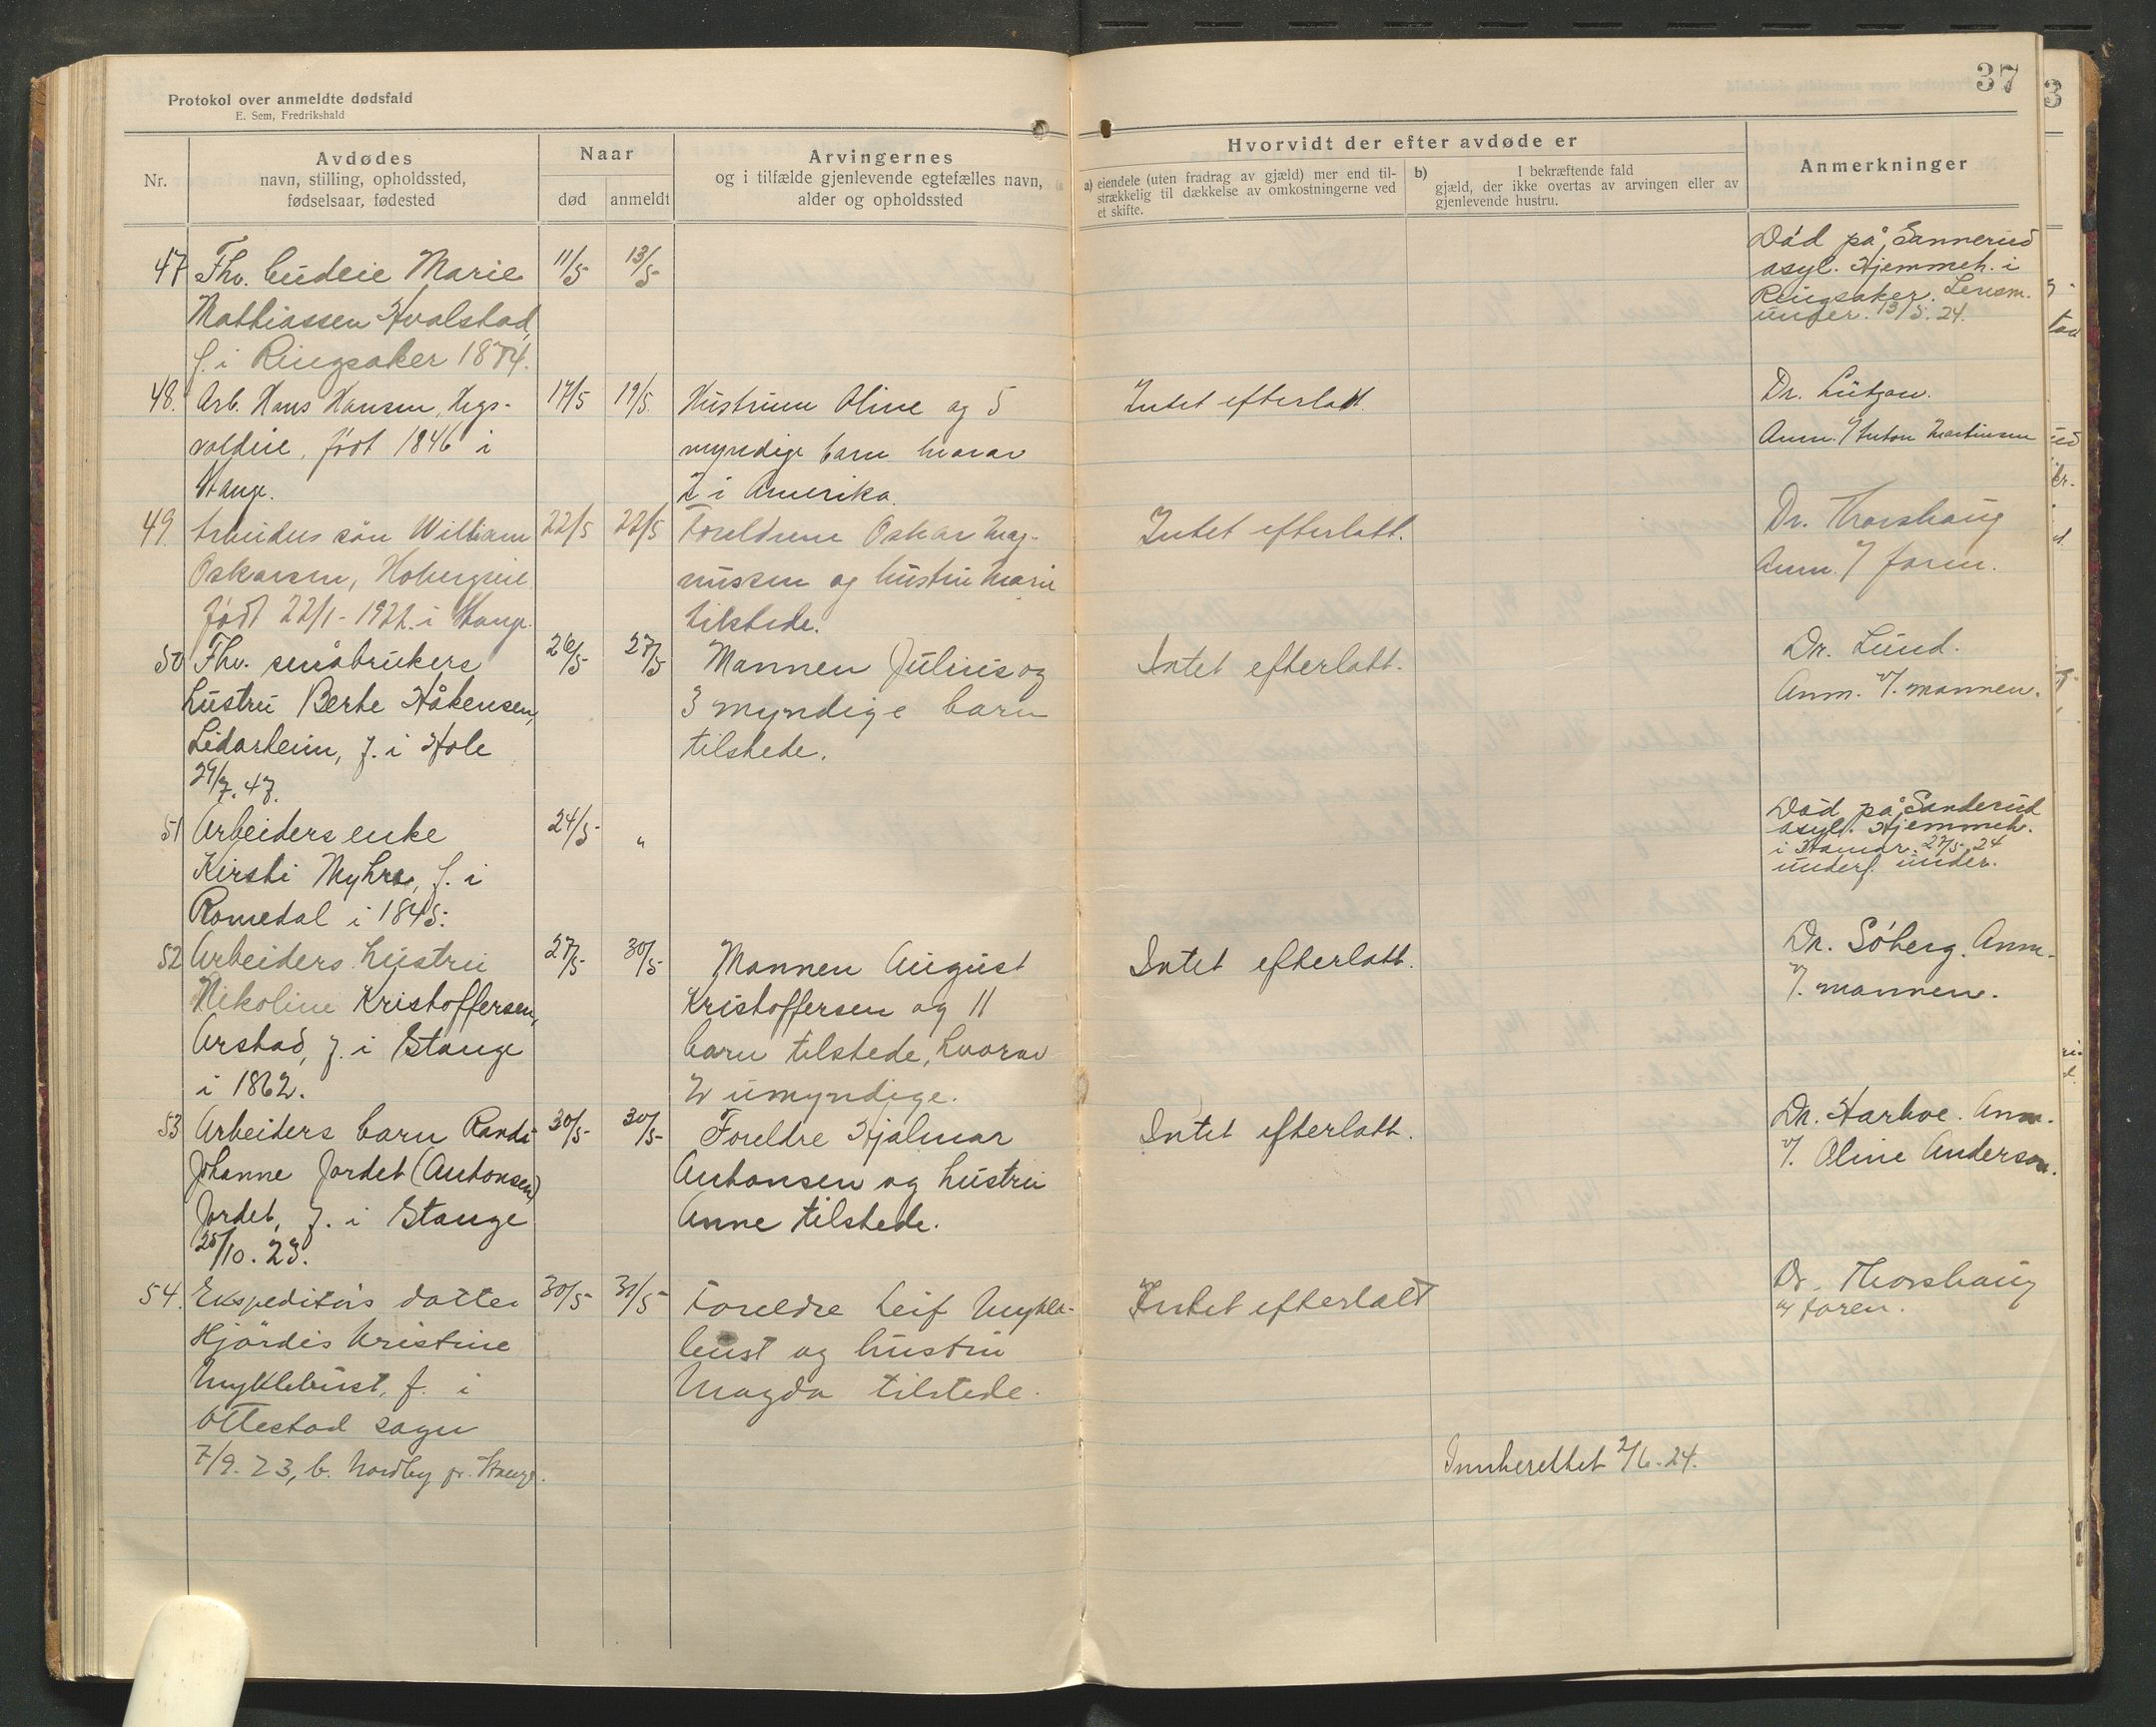 37
Protokol over anmeldte dødsfald
E. Sem, Fredrikshald
Nr.
Avdødes
navn, stilling, opholdssted,
fødselsaar, fødested
Naar
død
anmeldt
Arvingernes
og i tilfælde gjenlevende egtefælles navn,
alder og opholdssted
Hvorvidt der efter avdøde er
a) eiendele (uten fradrag av gjæld) mer end til-
strækkelig til dækkelse av omkostningerne ved
et skifte.
b) I bekræftende fald
gjæld, der ikke overtas av arvingen eller av
gjenlevende hustru.
Anmerkninger
47 Fhv. budeie Marie
Mathiassen Hvalstad,
f. i Ringsaker 1874.
11/5
13/5
Død på Sannerud
asyl. Hjemmeh. i
Ringsaker. Lensm.
under. 13/5. 24.
48. Arb. Hans Hansen,
født 1846 i
Stange.
17/5
19/5
Hustruen Oline og 5
myndige barn hvorav
2 i Amerika.
Intet efterlatt.
Dr. Lützow.
Anm. v/ Anton Martinsen
49. Arbeiders søn William
Oskarsen, Hobergseie
født 22/1-1922 i Stange.
22/5
22/5
Foreldrene Oskar Mag-
nussen og hustru Marie
tilstede.
Intet efterlatt.
Dr. Thorshaug
Anm. v/ faren.
50 Fhv. småbrukers
hustru Berte Håkensen,
Lidarheim, f. i Hole
29/7. 47.
26/5
27/5
Mannen Julius og
3 myndige barn
tilstede.
Intet efterlatt.
Dr. Lund.
Anm. v/. mannen.
51 Arbeiders enke
Kirsti Myhre, f. i
Romedal i 1845.
24/5
"
Død på Sanderud
asyl. Hjemmeh.
i Hamar. 27/5. 24
underf. under.
52 Arbeiders hustru
Nikoline Kristoffersen,
Arstad, f. i Stange
i 1862.
27/5
30/5
Mannen August
Kristoffersen og 11
barn tilstede, hvorav
2 umyndige.
Intet efterlatt.
Dr. Søberg. Anm.
v/. mannen.
53 Arbeiders barn Randi
Johanne Jordet (Antonsen)
Jordet, f. i Stange
25/10. 23.
30/5
30/5
Foreldre Hjalmar
Antonsen og hustru
Anne tilstede.
Intet efterlatt.
Dr. Harboe. Anm.
v/. Oline Anderson.
54. Ekspeditørs datter
Hjørdis Kristine
Myklebust, f. i
Ottestad sogn
7/9. 23, b. Nordby pr. Stange.
30/5
31/5
Foreldre Leif Mykle-
bust og hustru
Magda tilstede.
Intet efterlatt
Dr. Thorshaug
v/ faren.
Innberettet 2/6. 24.